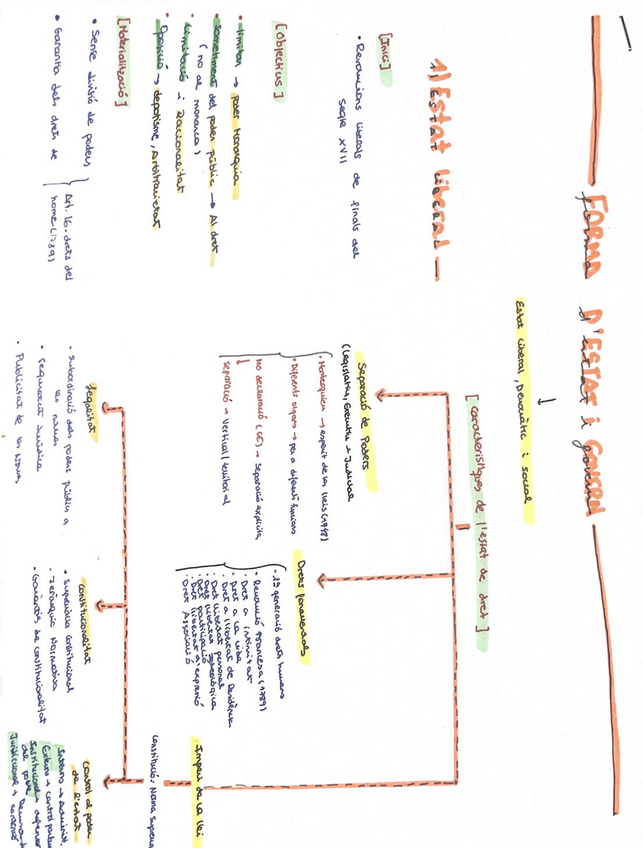 FORMA D'ESTAT i GOVERN
Estat liberal, Democràtic i social
1) Estat liberal
[Inici]
• Revolucions liberals de finals del
segle XVII
[Objectius]
• limitar → poder Monarquia
• Sometiment del poder públic → Al dret
(no al monarca)
• Limitació i Racionalitat
• Oposició → despotisme, Arbitrarietat
[Materialització]
• Sense divisió de poders
• Garantia dels drets de
Art. 16. drets del
home (1789)
[característiques de l'estat de dret]
Separació de Poders
(Legislatiu, Executiu i Judicial
• Montesquieu → esperit de les lleis (1748)
• Diferents òrgans → per a diferents funcions
NO declaració (CE) → Separació explícita
separació → Vertical/territorial
Drets fonamentals
• 1ª generació drets humans
• Revolució francesa (1789)
• Dret a intimitat
• Dret a la vida
• Dret a llibertat de Residència
• Dret llibertat personal
• Dret llibertat ideològica
• Dret participació
• Dret llibertat d'expressió
• Dret Associació
Imperi de la llei
Constitució: Norma Suprema
legalitat
• Subordinació dels poders públics a
les normes
• Seguretat Jurídica
• Publicitat de les Normes
Constitucionalitat
• Supremacia constitucional
• Jerarquia Normativa
• Garanties de constitucionalitat
Control al poder
de l'estat
Intern → Administ.
Extern → control
Institucional → defensor
del poble
Jurisdiccional →